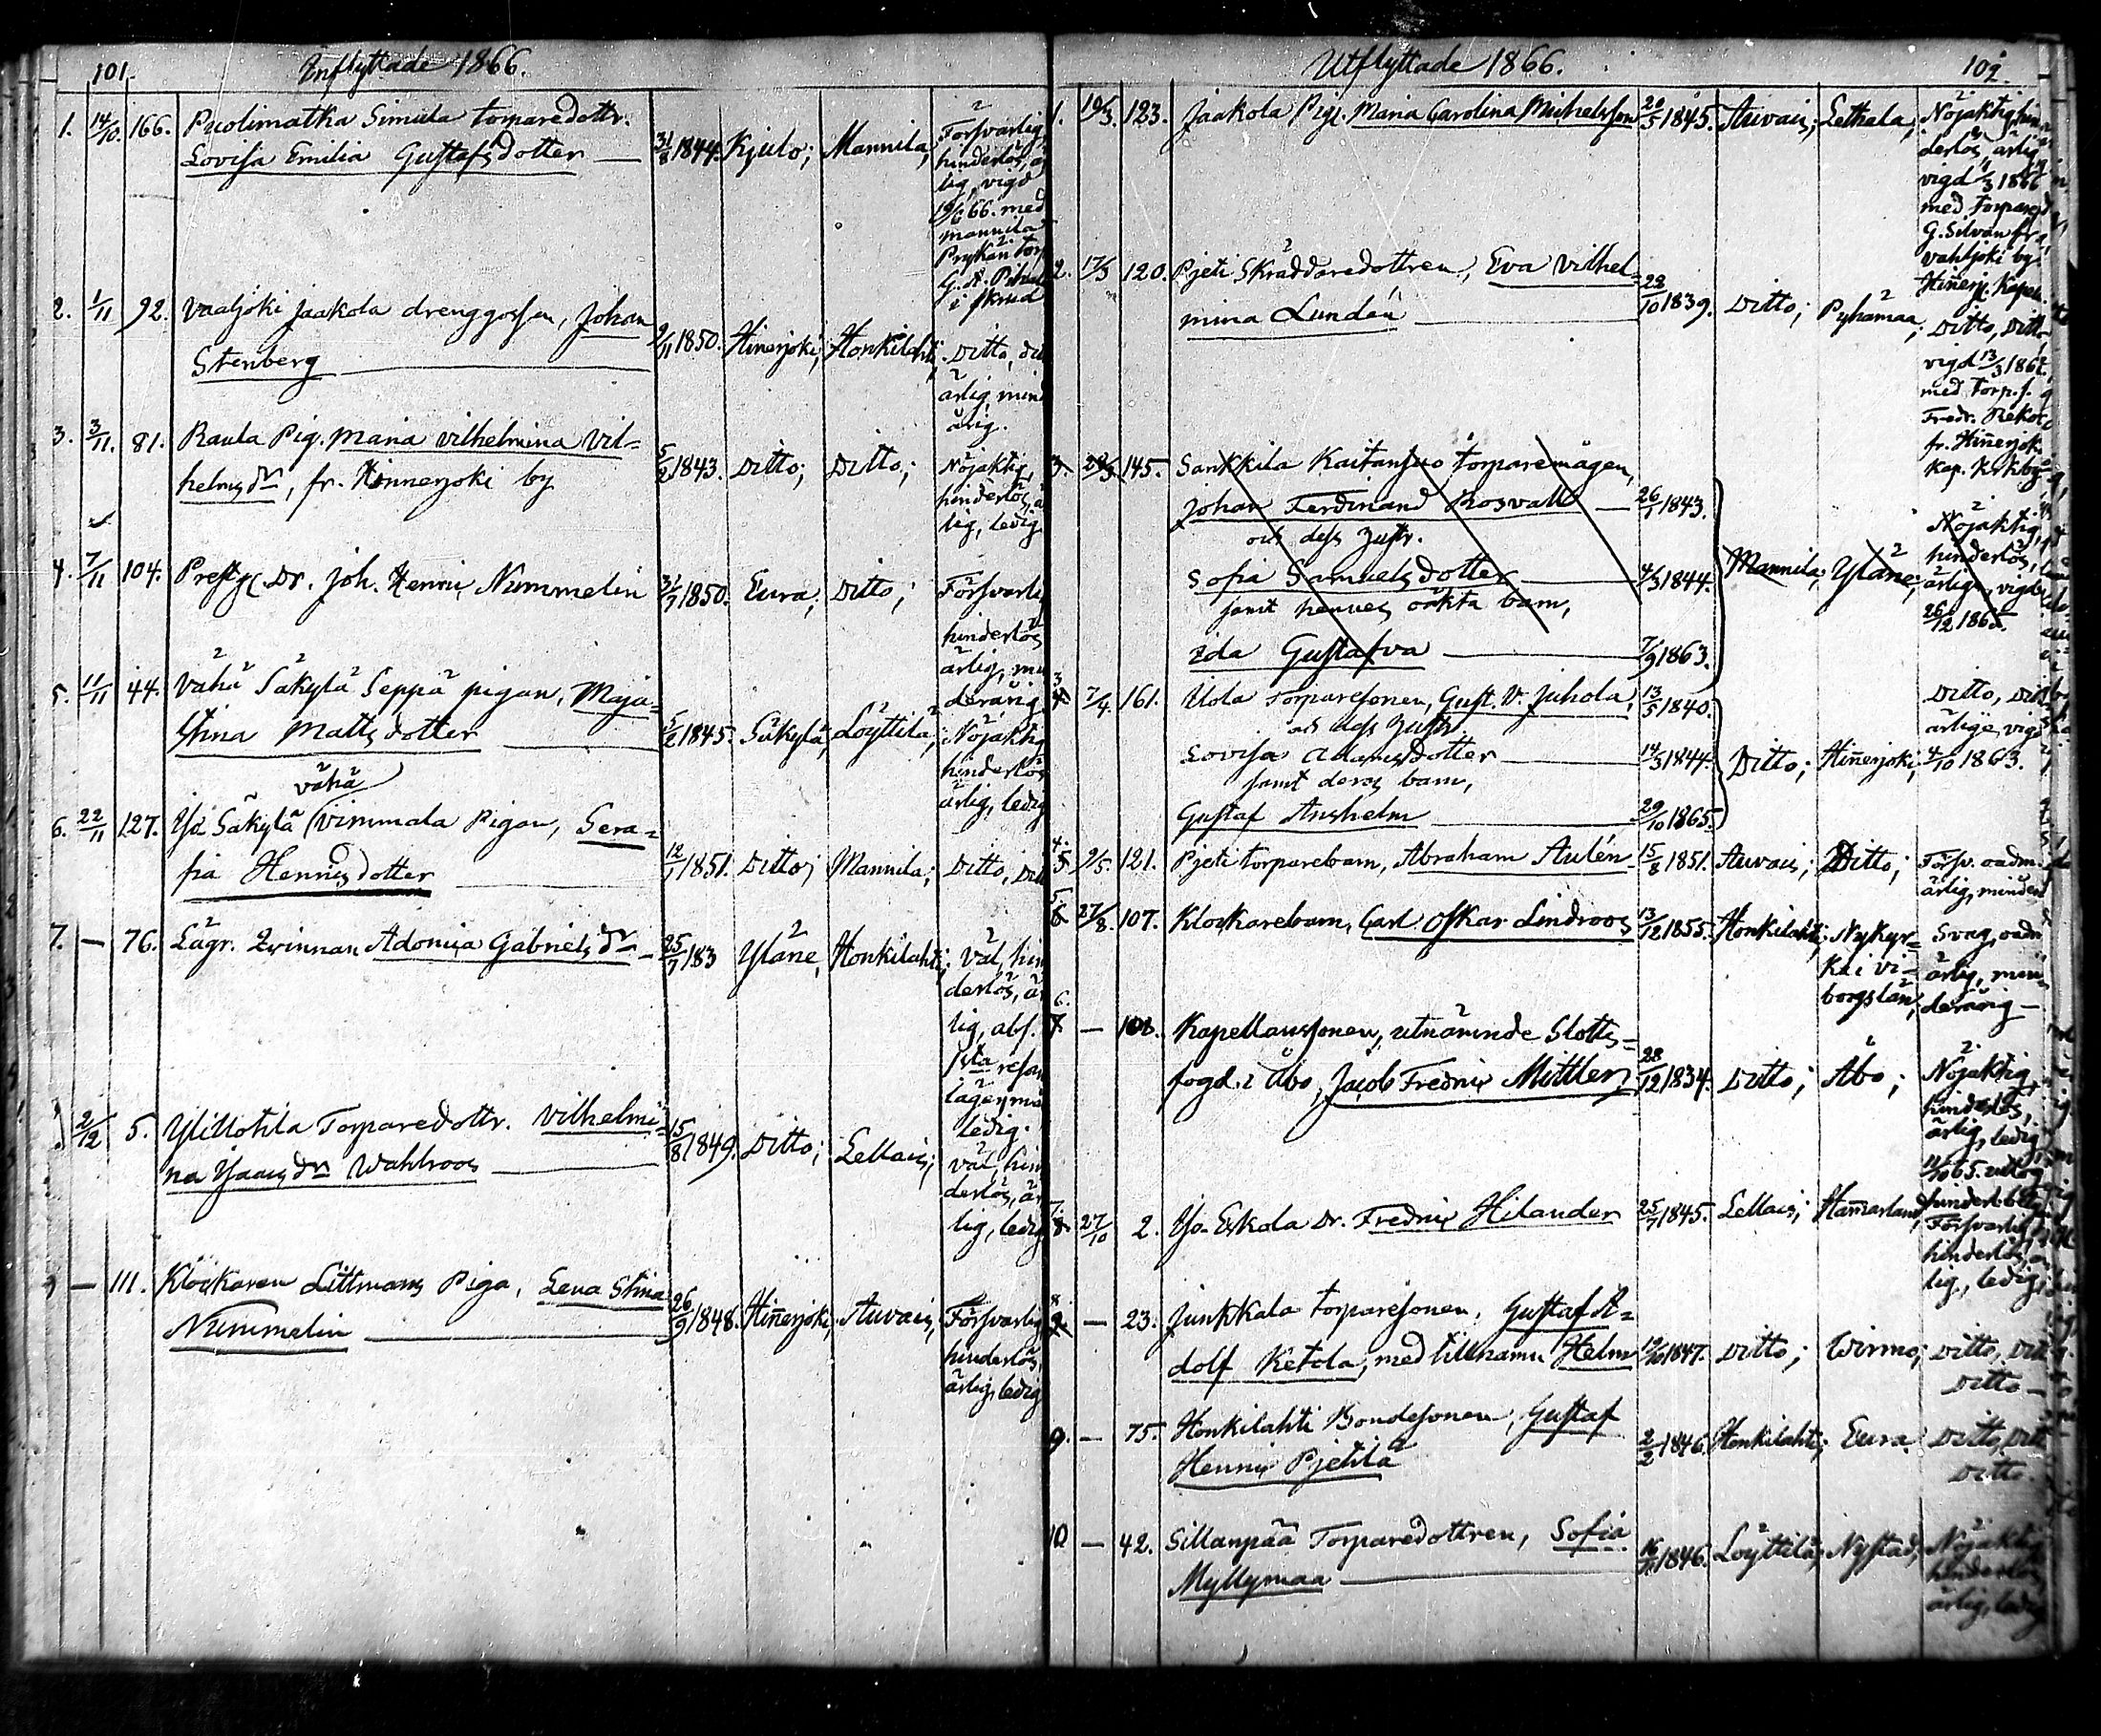 101.
Inflyttade 1866.
1. 14/10. 166. Puolimatka Simula torparedottr.
Lovisa Emilia Gustafsdotter — 31/8 1844. Kjulo; Mannila; Försvarlig,
hinderlös, är
lig, vigd
19/6 66. med
Mannila
Prykäri torp
G. A.
i skrud
2. 1/11 92. Vaaljoki Jaakola drenggossen, Johan
Stenberg — 9/11 1850. Hinnerjoki; Honkilahti; Ditto, dit
ärlig, mind
årig.
3. 3/11. 81. Raula Pig. Maria Vilhelmina Vil-
helmsdr, fr. Hinnerjoki by 5/2 1843. Ditto; Ditto; Nöjaktig,
hinderlös, är
lig, ledig
4. 7/11 104. Prestg. Dr. Joh. Henric Nummelin 31/7 1850. Eura; Ditto; Försvarlig
hinderlös
ärlig, min
derårig
5. 11/11 44. Vähä Säkylä Seppä pigan, Maja
Stina Mattsdotter — 5/2 1845. Säkylä; Löyttilä; Nöjaktig
hinderlös
ärlig, ledig
vähä
6. 22/11 127. Iso Säkylä Vimmala Pigan, Sera-
fia Henricsdotter — 12/1 1851. Ditto; Mannila; Ditto, Dit
7. — 76. Lägr. Qvinnan Adomia Gabrielsdr — 25/7 183 Yläne, Honkilahti; Väl, hin
derlös, är
lig, abs.
lägersmå
ledig.
2/12 5. Ylistotila Torparedottr. Vilhelmi-
na Isaacsdr Wahlroos — 15/8 1849. Ditto; Lellais; Väl, hin
derlös, är
lig, ledig
— 111. Klockaren Littmans Piga, Lena Stina
Nummelin — 26/9 1848. Hinnerjoki; Auvais, Försvarlig
hinderlös,
ärlig, ledig
102.
Utflyttade 1866.
1. 10/3. 123. Jaakola Pig. Maria Carolina Michelsson 20/5 1845. Auvais; Lethala; Nöjaktig, hin
derlös, ärlig
vigd 11/3 1866
med Torpare
G. Silvan fr.
Vahljoki by
Hinnerj. Kapell.
2. 17/3 120. Pjeti Skräddaredottren, Eva Vilhel-
mina Lundén — 28/10 1839. Ditto; Pyhämaa; Ditto, Ditto
vigd 13/3 1866.
med Torp.s.
Fredr. Rekola
fr. Hinnerjoki
Kap. Kyrkby
3. 28/3 145. Sankkila Kaitansuo torparemågen,
Johan Ferdinand Rosvall — 26/1 1843.
och dess hustr.
Sofia Samuelsdotter — 4/3 1844. Mannila; Yläne; Nöjaktig,
hinderlös,
ärliga, vigde
26/12 186
samt hennes oäkta barn,
Ida Gustafva — 7/9 1863.
3 4. 7/4. 161. Uola Torparesonen, Gust. V. Juhola, 13/5 1840. Ditto, Ditto
och dess hustr. ärlige, vigd
Lovisa Adamsdotter — 14/3 1844. Ditto; Hinnerjoki; 4/10 1863.
samt deras barn,
Gustaf Anshelm — 29/10 1865.
4. 5 9/5. 121. Pjeti torparebarn, Abraham Aulén 15/8 1851. Auvais; Ditto; Försv. oadm.
ärlig, minderå
5 6 27/8. 107. Klockarebarn, Carl Oskar Lindroos 13/12 1855. Honkilahti; Nykyr-
ka i Vi-
borgs län; Svag, oadm
ärlig, min-
derårig —
6. 7 — 108. Kapellanssonen, utnämnde Slotts-
fogd. i Åbo, Jacob Fredric Mittler 28/12 1834. Ditto; Åbo; Nöjaktig,
hinderlös,
ärlig, ledig
7. 8. 27/10 2. Iso-Eskola Dr. Fredric Hilander 25/7 1845. Lellais; Hammarland; Försvarlig
hinderlös, är
lig, ledig
8 9. — 23. Junkkala torparesonen, Gustaf A-
dolf Ketola, med tillnamn Helm 19/10 1847. Ditto; Wirmo; Ditto, Ditto
Ditto —
9. — 75. Honkilahti Bondesonen, Gustaf
Henric Pjetilä 2/2 1846. Honkilahti; Eura Ditto, Ditto
Ditto
10 — 42. Sillanpää Torparedottren, Sofia
Myllymaa — 16/11 1846. Löyttilä; Nystad; Nöjaktig
hinderlös,
ärlig, ledig